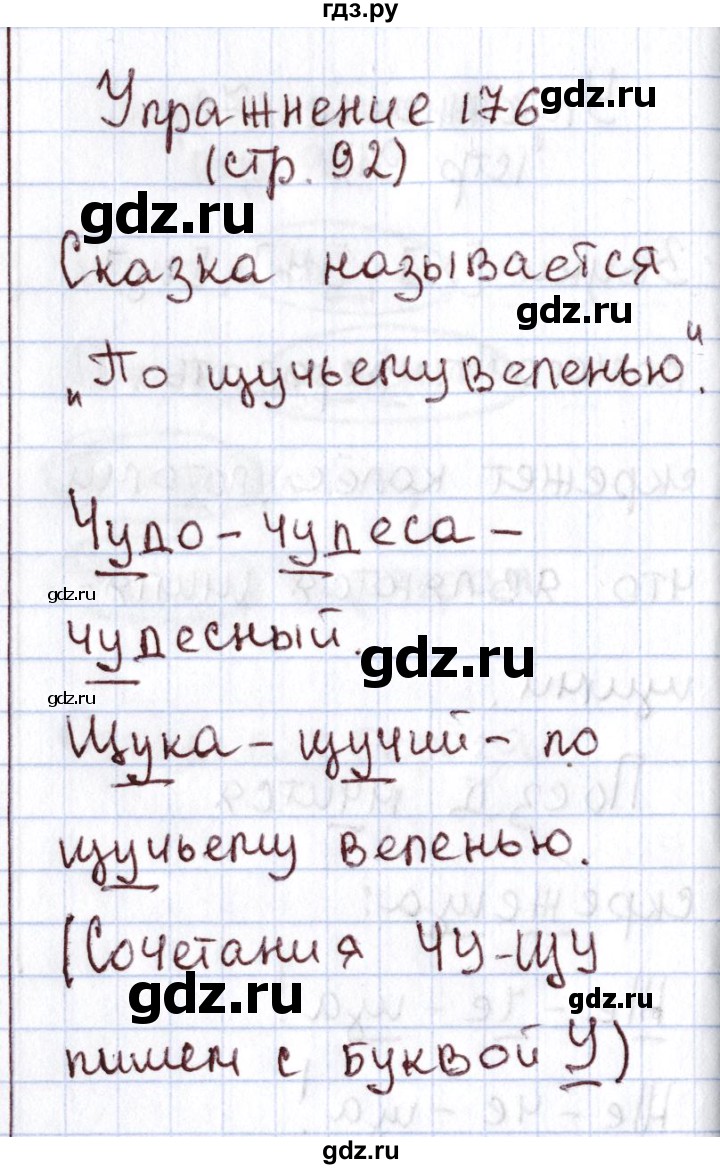 гдз.ру
Упражнение 176
gdz.ru
(стр. 92)
gdz.ru
Сказка называется
gdz.ru
„По щучьему веленью".
Чудо - чудеса -
gdz.ru
чудесный.
gdz.ru
gdz.ru
Щука - щучий - по
щучьему веленью.
(Сочетания ЧУ-ЩУ
gdz.ru
gdz.ru
пишем с буквой У)
gdz.ru